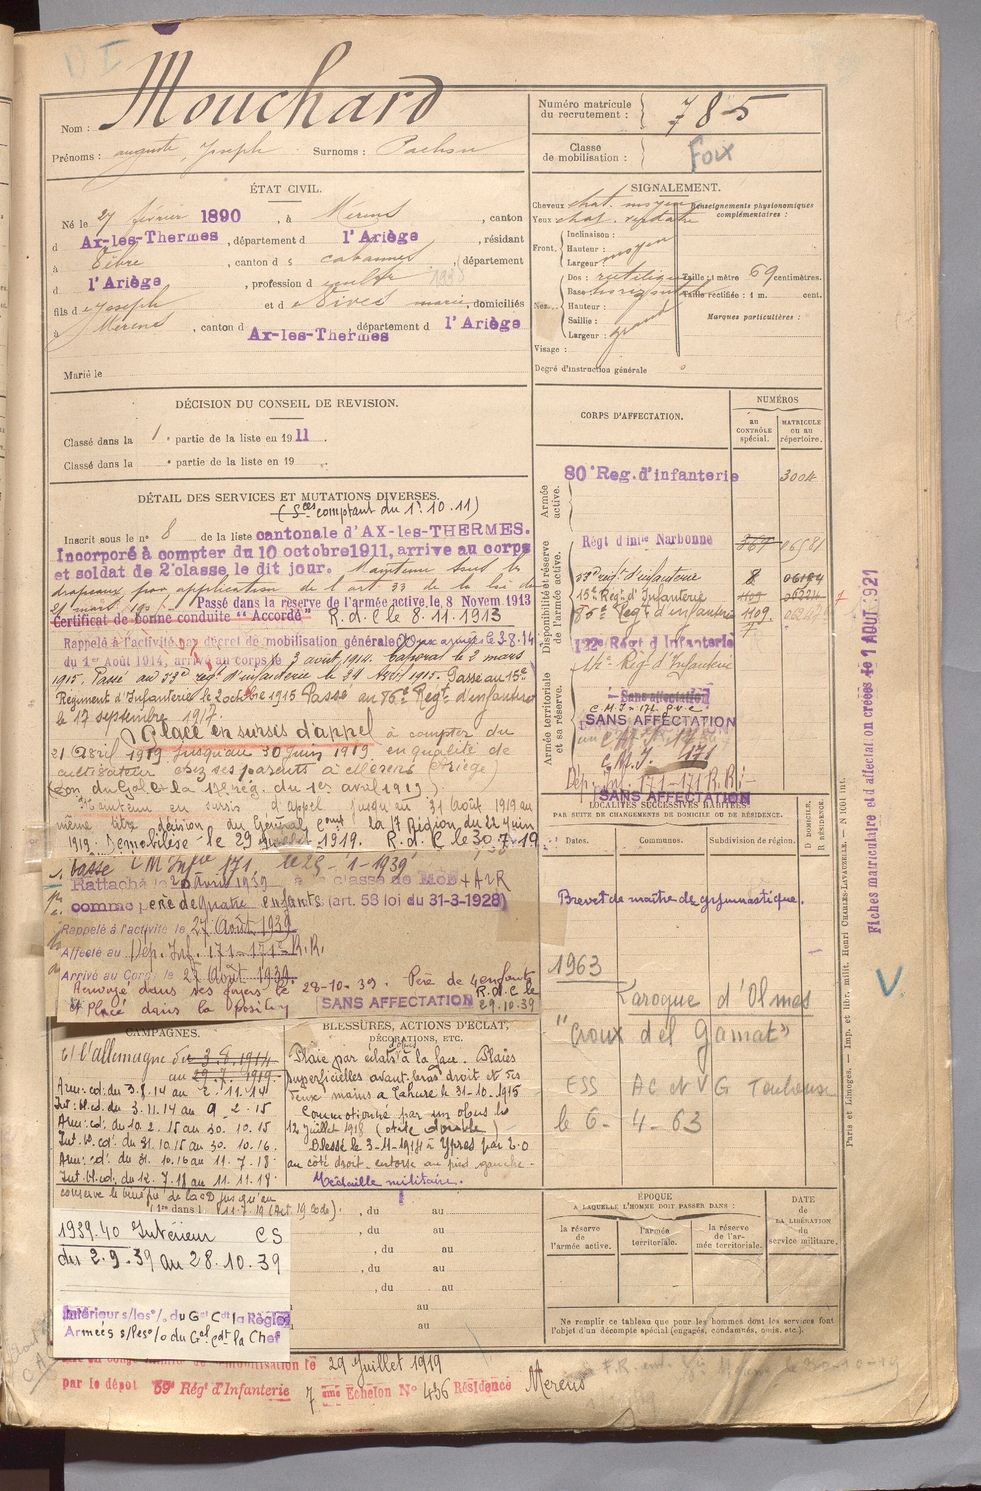 Mouchard
Nom :
Prénoms : auguste, Joseph Surnoms :
Numéro matricule du recrutement : 785
Classe de mobilisation : Foix
ÉTAT CIVIL.
Né le 27 février 1890, à Mérens, canton
d Ax-les-Thermes, département d l'Ariège, résidant
à canton d s cabannes, département
d l'Ariège, profession d cult
fils d e Joseph et d e Vives marie, domiciliés
à Mérens, canton d Ax-les-Thermes, département d l'Ariège
Marié le
SIGNALEMENT.
Cheveux chat. moyen
Yeux chat.
Front. Inclinaison :
Hauteur : moyen
Largeur
Nez. Dos : rectiligne
Base horizontale
Hauteur :
Saillie :
Largeur : grand
Visage :
Renseignements physionomiques complémentaires :
Taille : 1 mètre 69 centimètres.
Taille rectifiée : 1 m. cent.
Marques particulières :
Degré d'instruction générale
DÉCISION DU CONSEIL DE REVISION.
Classé dans la 1 e partie de la liste en 1911
Classé dans la e partie de la liste en 19
CORPS D'AFFECTATION.
NUMÉROS
au CONTRÔLE spécial.
MATRICULE OU AU répertoire.
Armée active.
80e Reg. d'infanterie 3004
Disponibilité et réserve de l'armée active.
Régt d'infie Narbonne
53e régt d'infanterie 8
15e Régt d'Infanterie 1109
86e Regt d'infanterie 1109
122e Régt d'Infanterie
Armée territoriale et sa réserve.
Sans affectation
SANS AFFECTATION
C.M.I. 171
Dép. Inf. 171-171 R.R.
SANS AFFECTATION
DÉTAIL DES SERVICES ET MUTATIONS DIVERSES.
(Sces comptant du 1r. 10. 11)
Inscrit sous le n° 8 de la liste cantonale d'AX-les-THERMES.
Incorporé à compter du 10 octobre 1911, arrive au corps
et soldat de 2e classe, le dit jour. Maintenu sous les
drapeaux par application de l'art 33 de la loi du
21 mars 19 Passé dans la réserve de l'armée active, le 8 Novem 1913
Certificat de bonne conduite "Accordé" R.d.C le 8.11.1913
Rappelé à l'activité par décret de mobilisation générale aux armées le 3.8.14
du 1er Août 1914, arrivé au corps le 3 août 1914. Caporal le 2 mars
1915. Passé au 53e regt d'infanterie le 24 Avril 1915. Passé au 15e
Régiment d'Infanterie le 2 octbre 1915 Passé au 86e Regt d'infanterie
le 17 septembre 1917.
Placé en sursis d'appel à compter du
21 avril 1919 jusqu'au 30 Juin 1919 en qualité de
cultivateur chez ses parents à Mérens (Ariège)
(Son du Gal Ct la 17e rég. du 1er avril 1919).
Maintenu en sursis d'appel jusqu'au 31 Août 1919 au
même titre décision du Général Comt la 17 Région du 22 juin
1919. Démobilisé le 29 juillet 1919. R.d.C le 30.7.19
Passé CM Infie 171 le 15-1-1939
Rattaché le 20 Avril 1939 à la classe de Mob
comme père de quatre enfants (art. 58 loi du 31-3-1928)
Rappelé à l'activité le 27 Août 1939
Affecté au Dép. Inf. 171-171e R.R.
Arrivé au Corps le 27 Août 1939.
Renvoyé dans ses foyers le 28-10-39 Père de 4 enfants
et Placé dans la position SANS AFFECTATION R.d.C le 29.10.39
LOCALITÉS SUCCESSIVES HABITÉES
PAR SUITE DE CHANGEMENTS DE DOMICILE OU DE RÉSIDENCE.
Dates. Communes. Subdivision de région. D DOMICILE. R RÉSIDENCE.
Brevet de maître de gymnastique.
1963
Laroque d'Olmes
"Croux del Gamat"
ESS AC et VG Toulouse
le 6-4-63
CAMPAGNES.
C/ l'allemagne du 3.8.1914
au 29.7.1919
Arm: cd: du 3.8.14 au 2.11.14
Int: bl. cd. du 3.11.14 au 9.2.15
Arm: cd: du 10.2.15 au 30.10.15
Int. bl. cd. du 31.10.15 au 30.10.16.
Arm: cd: du 31.10.16 au 11.7.18
Int. bl. cd. du 12.7.18 au 11.11.18
conserve le bénéfice de la CD jusqu'au
11.7.19 (Art. 19 Code).
BLESSURES, ACTIONS D'ÉCLAT, DÉCORATIONS, ETC.
Plaie par éclats d'obus à la face. Plaies
superficielles avant-bras droit et des
deux mains à Tahure le 31-10-1915
Commotionné par un obus le
12 juillet 1918 (otite double)
Blessé le 3-11-1914 à Ypres par E.O
au côté droit - entorse au pied gauche -
Médaille militaire.
, du au
1939.40 Intérieur CS
du 2.9.39 au 28.10.39
, du au
, du au
, du au
, du au
au
au
Intérieur s/les o/ du Gal Cdt la Région
Armées s/les o/ du Gal cdt en Chef
ÉPOQUE
A LAQUELLE L'HOMME DOIT PASSER DANS :
la réserve de l'armée active.
l'armée territoriale.
la réserve de l'armée territoriale.
DATE de LA LIBÉRATION du service militaire.
Ne remplir ce tableau que pour les hommes dont les services font
l'objet d'un décompte spécial (engagés, condamnés, omis, etc.).
démobilisation le 29 Juillet 1919
par le dépôt 59e Régt d'Infanterie 7 ème Échelon N° 456 Résidence Mérens
Fiches matriculaire et d'affectation créées le 1 AOUT 1921
V.
Paris et Limoges. — Imp. et libr. milit. Henri CHARLES-LAVAUZELLE.